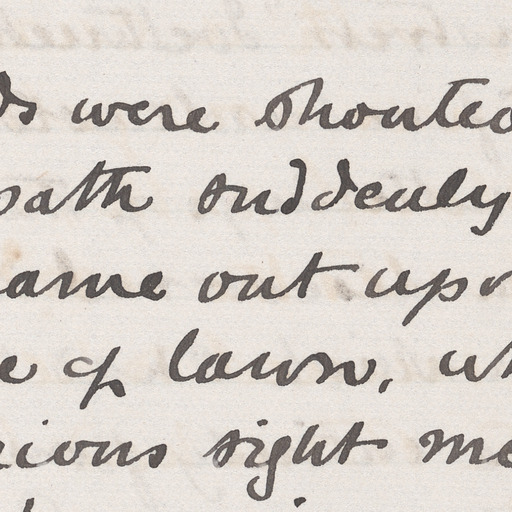 ds were shouted
path suddenly
came out upo
e of lawn, wh
rious sight me